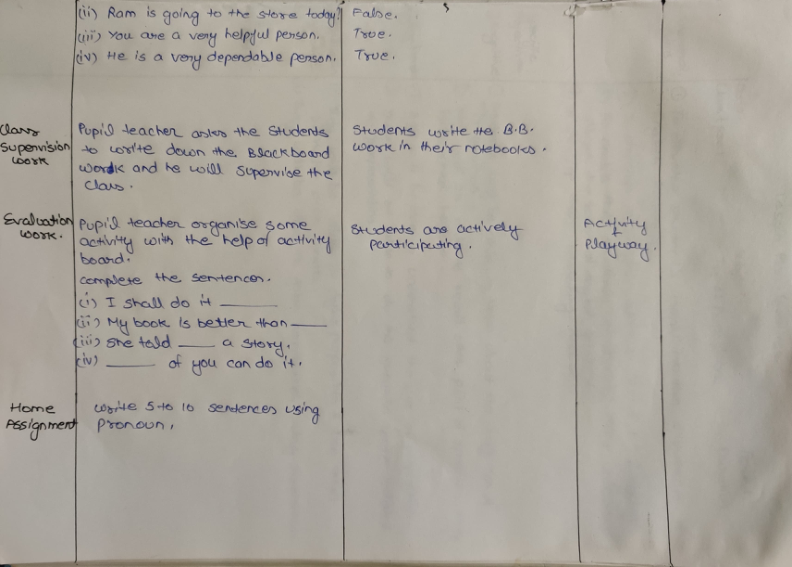 (ii) Ram is going to the store today? False.
(iii) You are a very helpful person. True.
(iv) He is a very dependable person. True.
Class Supervision work
Pupil teacher asks the students
to write down the Blackboard
work and he will supervise the
class.
Students write the B.B.
work in their notebooks.
Evaluation work.
Pupil teacher organise some
activity with the help of activity
board.
complete the sentences.
(i) I shall do it ______
(ii) My book is better than ____
(iii) She told ____ a story.
(iv) _____ of you can do it.
Students are actively
participating.
Activity
+
Playway.
Home
Assignment
write 5 to 10 sentences using
pronoun,